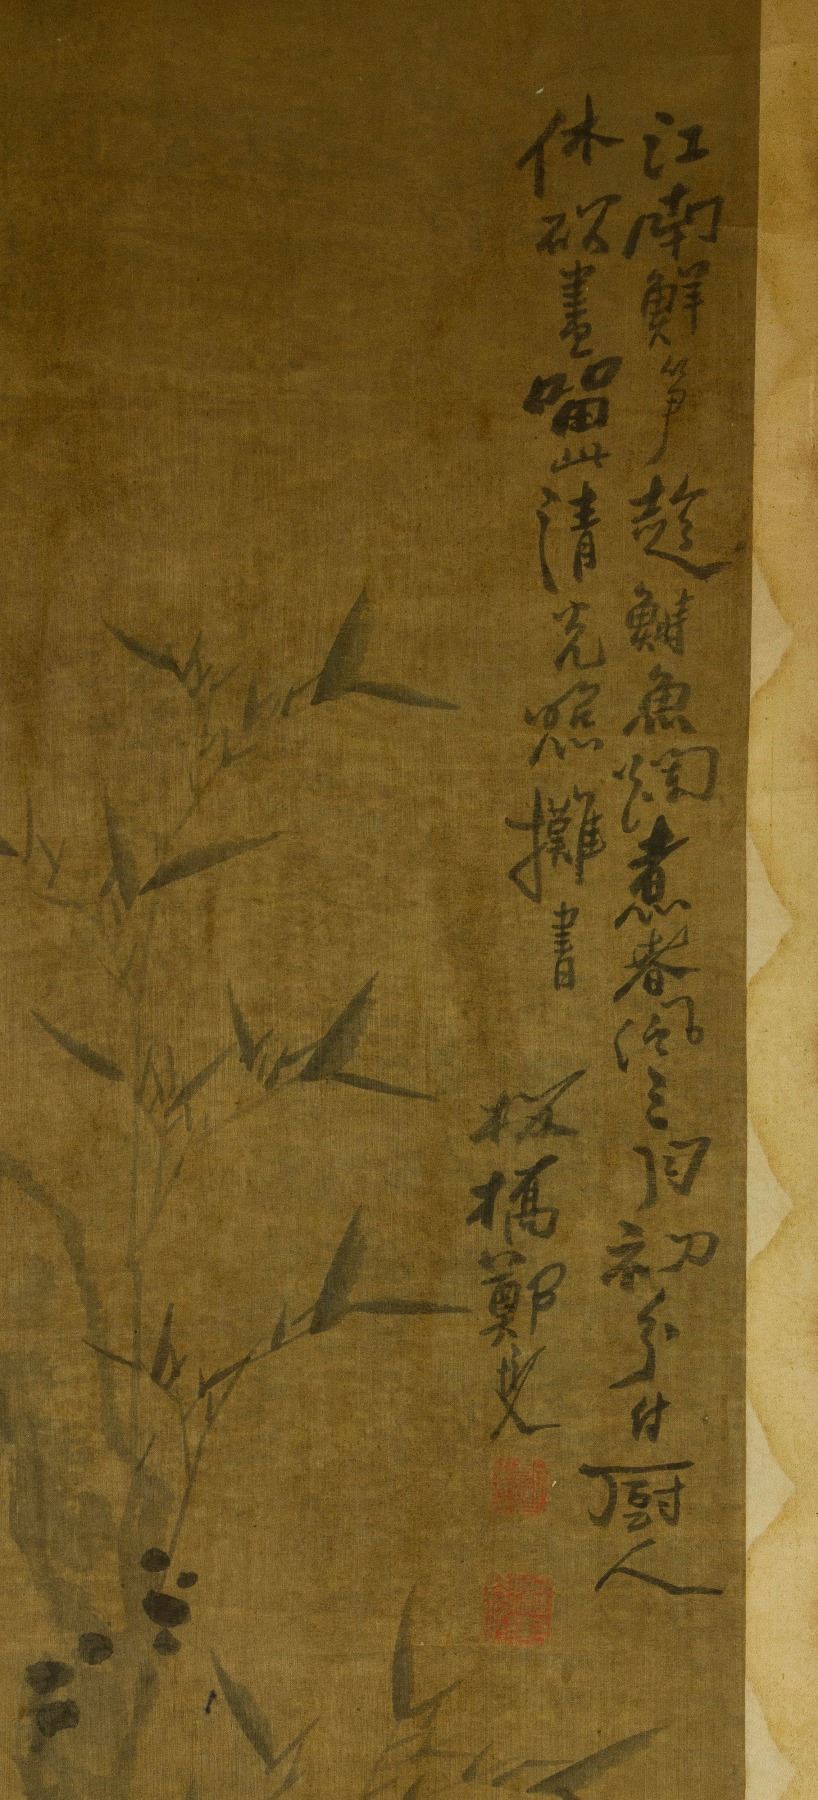 江南鮮筍趂鰣魚爛煮春風三月初分付廚人
休斫盡留此清光照攤書
板橋鄭燮